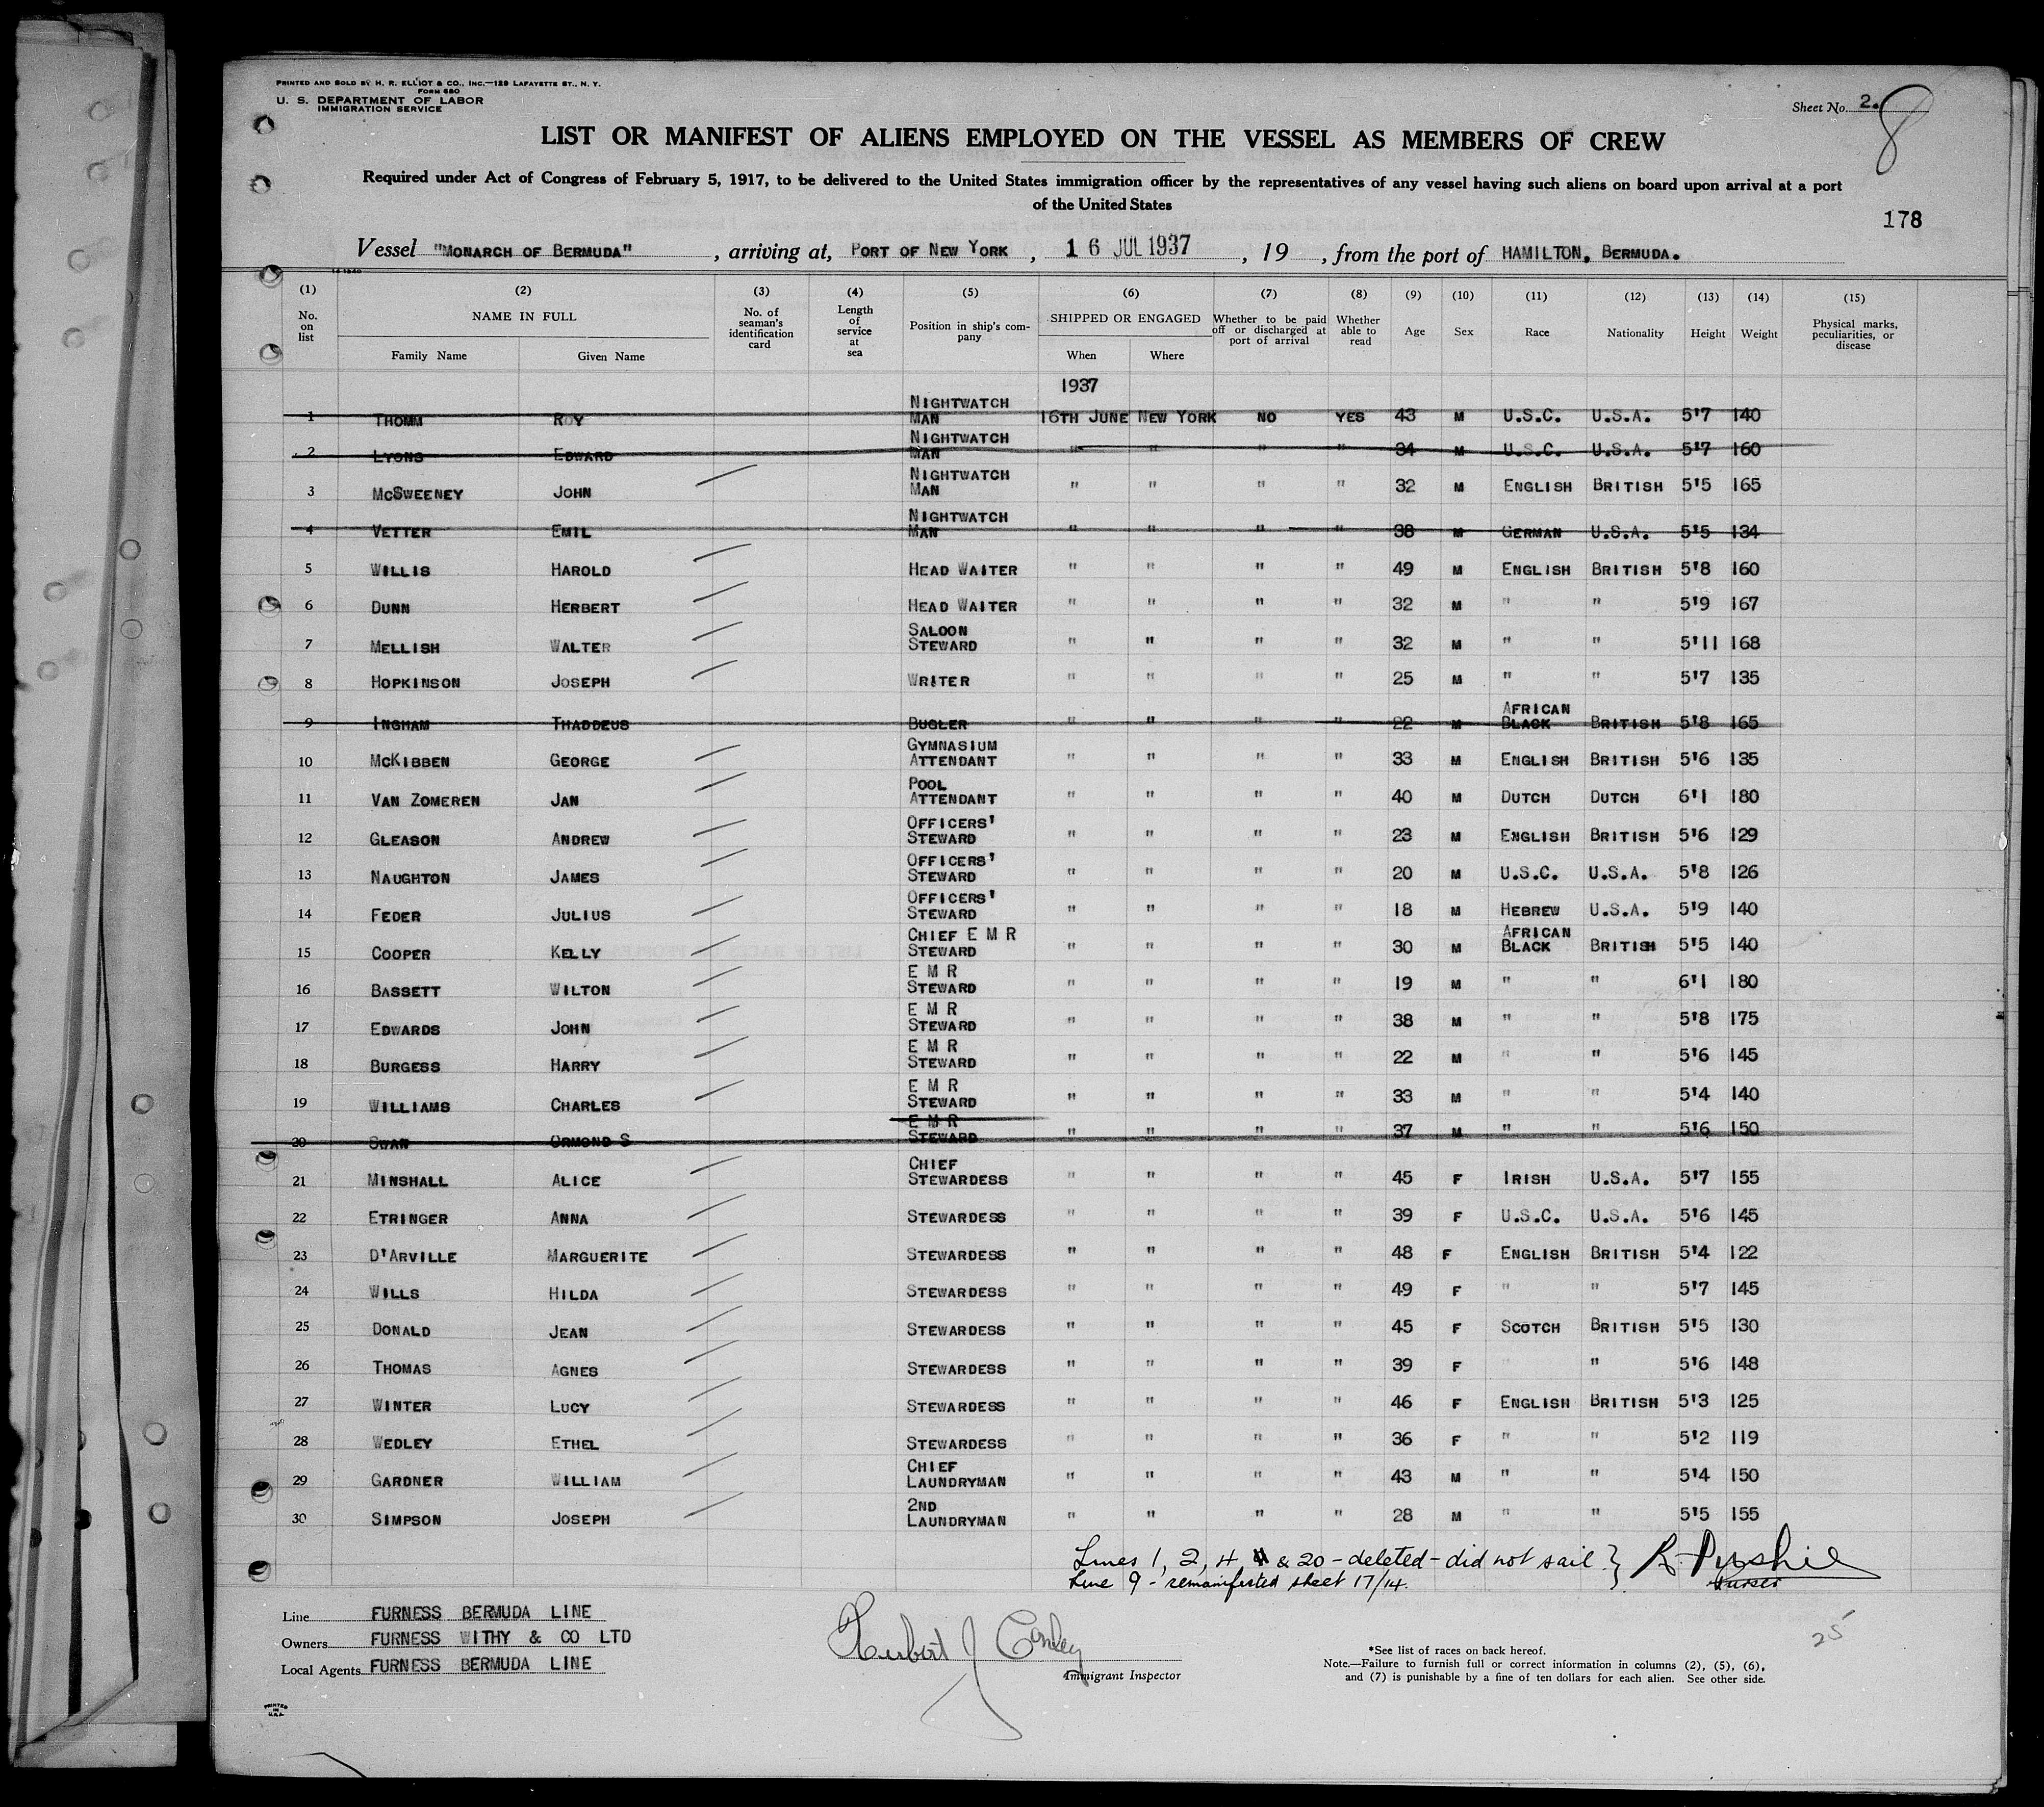 PRINTED AND SOLD BY H. R. ELLIOT & CO., INC.—129 LAFAYETTE ST., N. Y.
FORM 680
U. S. DEPARTMENT OF LABOR
IMMIGRATION SERVICE
Sheet No. 2.
8
LIST OR MANIFEST OF ALIENS EMPLOYED ON THE VESSEL AS MEMBERS OF CREW
Required under Act of Congress of February 5, 1917, to be delivered to the United States immigration officer by the representatives of any vessel having such aliens on board upon arrival at a port
of the United States
178
Vessel "MONARCH OF BERMUDA", arriving at, PORT OF NEW YORK, 16 JUL 1937, 19 , from the port of HAMILTON, BERMUDA.
(1) No. on list (2) NAME IN FULL Family Name Given Name (3) No. of seaman's identification card (4) Length of service at sea (5) Position in ship's company (6) SHIPPED OR ENGAGED When Where (7) Whether to be paid off or discharged at port of arrival (8) Whether able to read (9) Age (10) Sex (11) Race (12) Nationality (13) Height (14) Weight (15) Physical marks, peculiarities, or disease
1937
1 THOMM ROY NIGHTWATCH MAN 16TH JUNE NEW YORK NO YES 43 M U.S.C. U.S.A. 5'7 140
2 LYONS EDWARD NIGHTWATCH MAN " " " " 34 M U.S.C. U.S.A. 5'7 160
3 MCSWEENEY JOHN NIGHTWATCH MAN " " " " 32 M ENGLISH BRITISH 5'5 165
4 VETTER EMIL NIGHTWATCH MAN " " " " 38 M GERMAN U.S.A. 5'5 134
5 WILLIS HAROLD HEAD WAITER " " " " 49 M ENGLISH BRITISH 5'8 160
6 DUNN HERBERT HEAD WAITER " " " " 32 M " " 5'9 167
7 MELLISH WALTER SALOON STEWARD " " " " 32 M " " 5'11 168
8 HOPKINSON JOSEPH WRITER " " " " 25 M " " 5'7 135
9 INGHAM THADDEUS BUGLER " " " " 22 M AFRICAN BLACK BRITISH 5'8 165
10 MCKIBBEN GEORGE GYMNASIUM ATTENDANT " " " " 33 M ENGLISH BRITISH 5'6 135
11 VAN ZOMEREN JAN POOL ATTENDANT " " " " 40 M DUTCH DUTCH 6'1 180
12 GLEASON ANDREW OFFICERS' STEWARD " " " " 23 M ENGLISH BRITISH 5'6 129
13 NAUGHTON JAMES OFFICERS' STEWARD " " " " 20 M U.S.C. U.S.A. 5'8 126
14 FEDER JULIUS OFFICERS' STEWARD " " " " 18 M HEBREW U.S.A. 5'9 140
15 COOPER KELLY CHIEF E M R STEWARD " " " " 30 M AFRICAN BLACK BRITISH 5'5 140
16 BASSETT WILTON E M R STEWARD " " " " 19 M " " 6'1 180
17 EDWARDS JOHN E M R STEWARD " " " " 38 M " " 5'8 175
18 BURGESS HARRY E M R STEWARD " " " " 22 M " " 5'6 145
19 WILLIAMS CHARLES E M R STEWARD " " " " 33 M " " 5'4 140
20 SWAN ORMOND S E M R STEWARD " " " " 37 M " " 5'6 150
21 MINSHALL ALICE CHIEF STEWARDESS " " " " 45 F IRISH U.S.A. 5'7 155
22 ETRINGER ANNA STEWARDESS " " " " 39 F U.S.C. U.S.A. 5'6 145
23 D'ARVILLE MARGUERITE STEWARDESS " " " " 48 F ENGLISH BRITISH 5'4 122
24 WILLS HILDA STEWARDESS " " " " 49 F " " 5'7 145
25 DONALD JEAN STEWARDESS " " " " 45 F SCOTCH BRITISH 5'5 130
26 THOMAS AGNES STEWARDESS " " " " 39 F " " 5'6 148
27 WINTER LUCY STEWARDESS " " " " 46 F ENGLISH BRITISH 5'3 125
28 WEDLEY ETHEL STEWARDESS " " " " 36 F " " 5'2 119
29 GARDNER WILLIAM CHIEF LAUNDRYMAN " " " " 43 M " " 5'4 150
30 SIMPSON JOSEPH 2ND LAUNDRYMAN " " " " 28 M " " 5'5 155
Lines 1, 2, 4, & 20 - deleted - did not sail }
Line 9 - remanifested sheet 17/14.
Purser
Line FURNESS BERMUDA LINE
Owners FURNESS WITHY & CO LTD
Local Agents FURNESS BERMUDA LINE
Herbert J Conley
Immigrant Inspector
25
*See list of races on back hereof.
Note.—Failure to furnish full or correct information in columns (2), (5), (6),
and (7) is punishable by a fine of ten dollars for each alien. See other side.
PRINTED IN U.S.A.